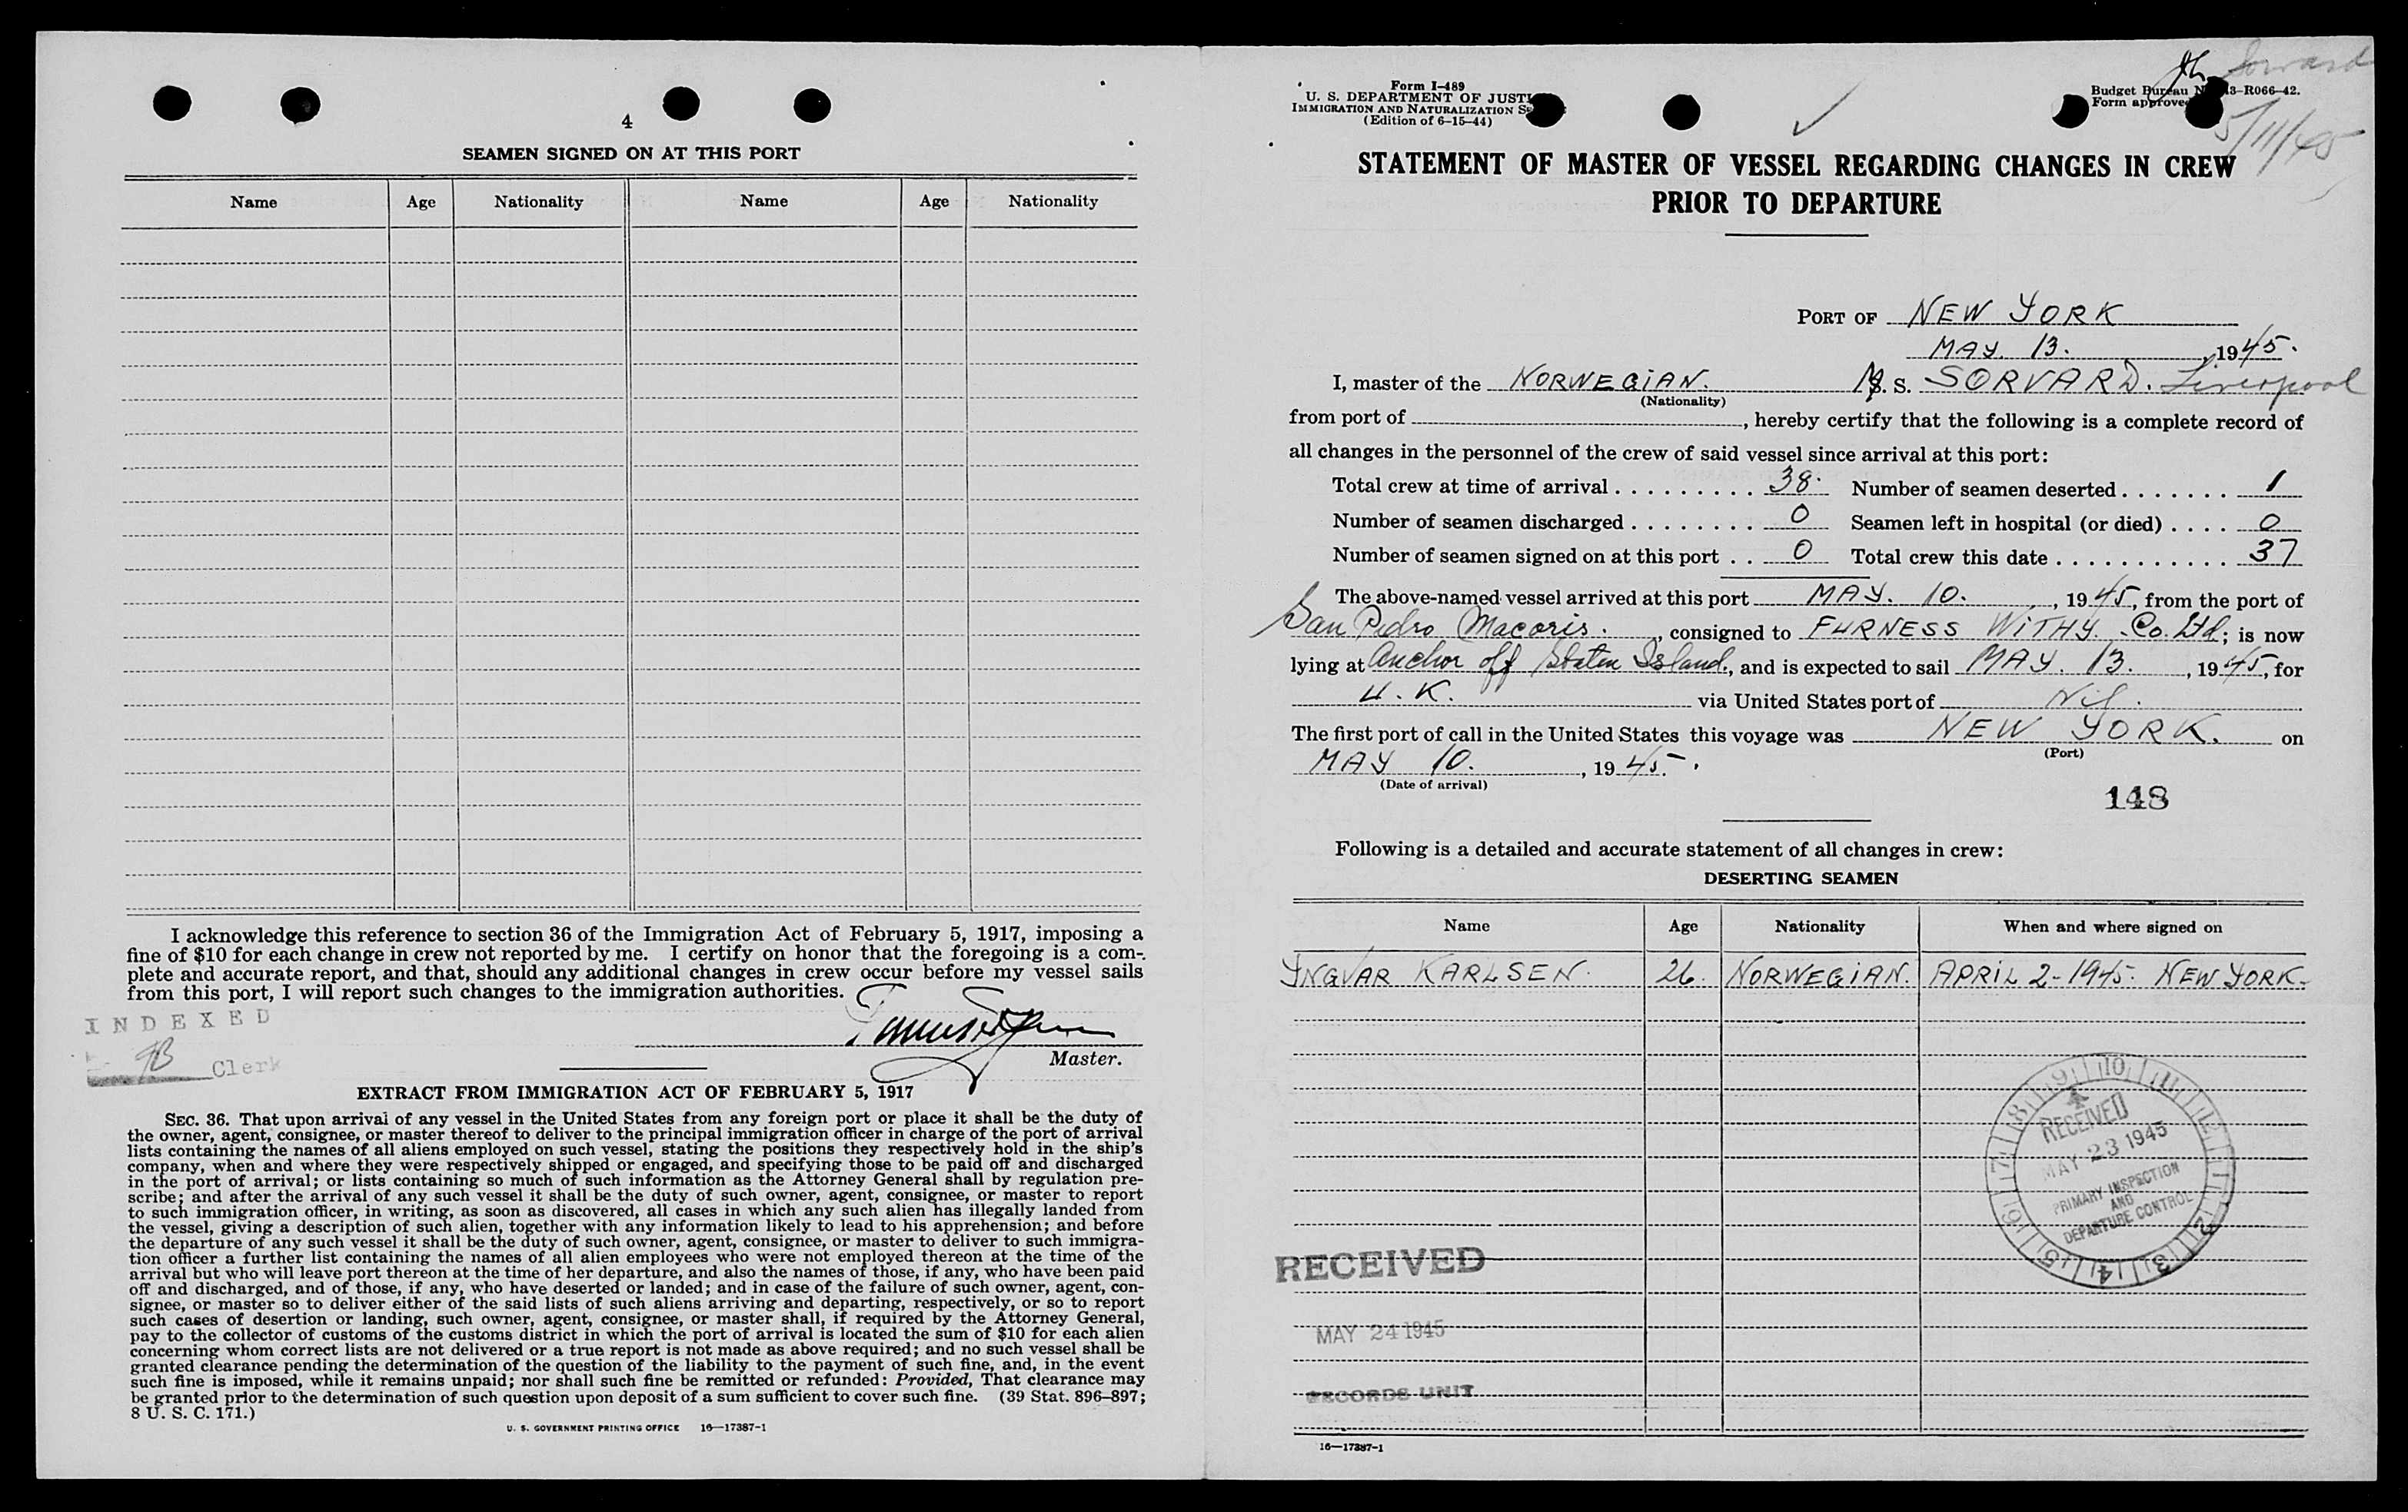 4
SEAMEN SIGNED ON AT THIS PORT
Name Age Nationality Name Age Nationality
I acknowledge this reference to section 36 of the Immigration Act of February 5, 1917, imposing a
fine of $10 for each change in crew not reported by me. I certify on honor that the foregoing is a com-
plete and accurate report, and that, should any additional changes in crew occur before my vessel sails
from this port, I will report such changes to the immigration authorities.
INDEXED
Clerk
Master.
EXTRACT FROM IMMIGRATION ACT OF FEBRUARY 5, 1917
SEC. 36. That upon arrival of any vessel in the United States from any foreign port or place it shall be the duty of
the owner, agent, consignee, or master thereof to deliver to the principal immigration officer in charge of the port of arrival
lists containing the names of all aliens employed on such vessel, stating the positions they respectively hold in the ship's
company, when and where they were respectively shipped or engaged, and specifying those to be paid off and discharged
in the port of arrival; or lists containing so much of such information as the Attorney General shall by regulation pre-
scribe; and after the arrival of any such vessel it shall be the duty of such owner, agent, consignee, or master to report
to such immigration officer, in writing, as soon as discovered, all cases in which any such alien has illegally landed from
the vessel, giving a description of such alien, together with any information likely to lead to his apprehension; and before
the departure of any such vessel it shall be the duty of such owner, agent, consignee, or master to deliver to such immigra-
tion officer a further list containing the names of all alien employees who were not employed thereon at the time of the
arrival but who will leave port thereon at the time of her departure, and also the names of those, if any, who have been paid
off and discharged, and of those, if any, who have deserted or landed; and in case of the failure of such owner, agent, con-
signee, or master so to deliver either of the said lists of such aliens arriving and departing, respectively, or so to report
such cases of desertion or landing, such owner, agent, consignee, or master shall, if required by the Attorney General,
pay to the collector of customs of the customs district in which the port of arrival is located the sum of $10 for each alien
concerning whom correct lists are not delivered or a true report is not made as above required; and no such vessel shall be
granted clearance pending the determination of the question of the liability to the payment of such fine, and, in the event
such fine is imposed, while it remains unpaid; nor shall such fine be remitted or refunded: Provided, That clearance may
be granted prior to the determination of such question upon deposit of a sum sufficient to cover such fine. (39 Stat. 896–897;
8 U. S. C. 171.)
U. S. GOVERNMENT PRINTING OFFICE 16—17387-1
Form I-489
U. S. DEPARTMENT OF JUSTI
IMMIGRATION AND NATURALIZATION SE
(Edition of 6-15-44)
Budget Bureau N 13-R066-42.
Form approve
5/11/45
STATEMENT OF MASTER OF VESSEL REGARDING CHANGES IN CREW
PRIOR TO DEPARTURE
PORT OF NEW YORK
MAY. 13. , 1945.
I, master of the NORWEGIAN. M. S. SORVARD. Liverpool
(Nationality)
from port of , hereby certify that the following is a complete record of
all changes in the personnel of the crew of said vessel since arrival at this port:
Total crew at time of arrival 38. Number of seamen deserted 1
Number of seamen discharged 0 Seamen left in hospital (or died) 0
Number of seamen signed on at this port 0 Total crew this date 37
The above-named vessel arrived at this port MAY. 10. , 1945, from the port of
San Pedro Macoris. , consigned to FURNESS WITHY. Co. Ltd; is now
lying at Anchor off Staten Island, and is expected to sail MAY. 13. , 1945, for
U.K. via United States port of Nil.
The first port of call in the United States this voyage was NEW YORK. on
(Port)
MAY 10. , 1945.
(Date of arrival)
148
Following is a detailed and accurate statement of all changes in crew:
DESERTING SEAMEN
Name Age Nationality When and where signed on
YNGVAR KARLSEN. 26. NORWEGIAN. APRIL 2-1945. NEW YORK.
9 10 11 12 1 2 3 4 5 6 7 8
RECEIVED
MAY 23 1945
PRIMARY INSPECTION
AND
DEPARTURE CONTROL
RECEIVED
MAY 24 1945
RECORDS UNIT
16—17387-1